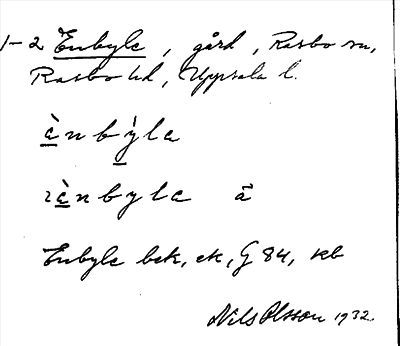 1-2 Enbyle, gård, Rasbo sn,
Rasbo hd, Uppsala l.
ènbỳle
ènbyle å
Enbyle bek, ek, G 84, kb
Nils Olsson 1932.